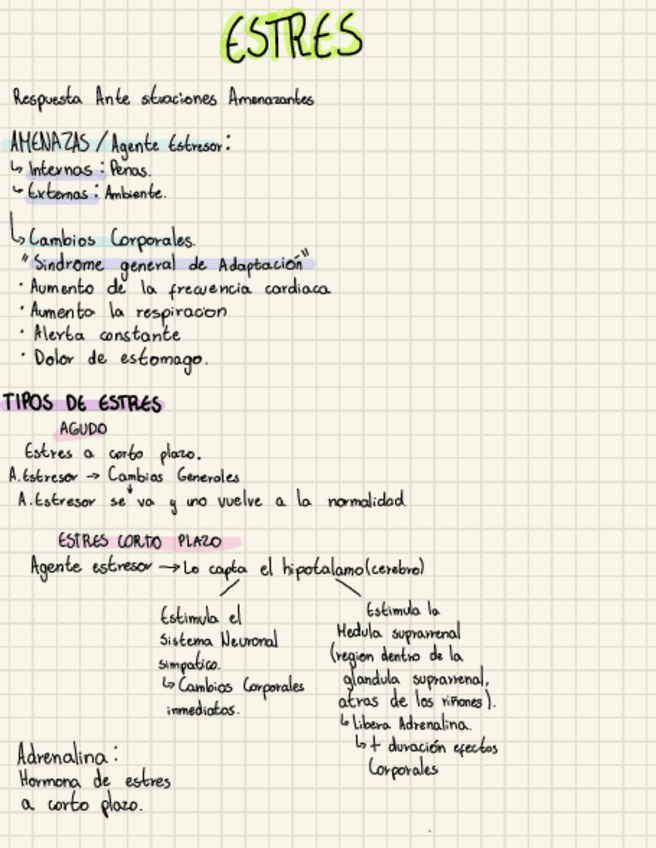 ESTRES
Respuesta Ante situaciones Amenazantes
AMENAZAS / Agente Estresor:
↳ Internas: Penas.
↳ Externas: Ambiente.
↳ Cambios Corporales.
"Sindrome general de Adaptación"
· Aumento de la frecuencia cardiaca
· Aumento la respiracion
· Alerta constante
· Dolor de estomago.
TIPOS DE ESTRES
AGUDO
Estres a corto plazo.
A.Estresor → Cambias Generales
↓
A.Estresor se va y uno vuelve a la normalidad
ESTRES CORTO PLAZO
Agente estresor → Lo capta el hipotalamo (cerebro)
Estimula el
Sistema Neuronal
simpatico.
↳ Cambios Corporales
inmediatos.
Estimula la
Medula suprarrenal
(region dentro de la
glandula suprarrenal,
atras de los riñones).
↳ Libera Adrenalina.
↳ + duración efectos
Corporales
Adrenalina:
Hormona de estres
a corto plazo.